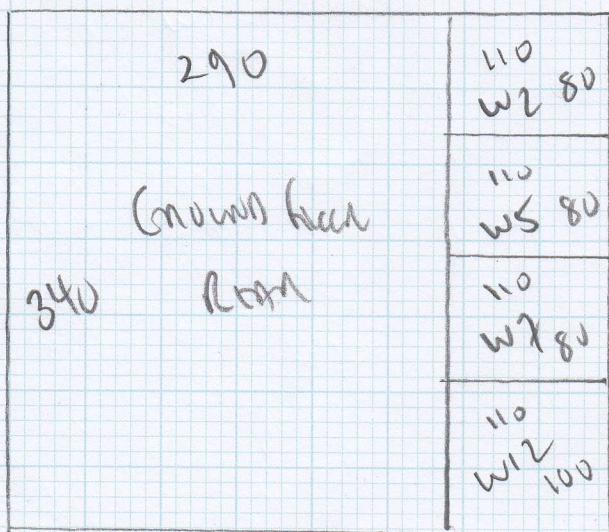 290
GROUND FLOOR
REAR
340
110
W2 80
110
W5 80
110
W7 80
110
W12
100